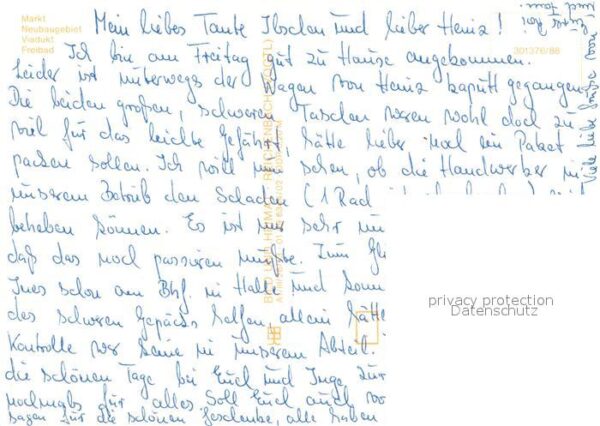 Markt
Neubaugebiet
Viadukt
Freibad
301376/86
Mein liebes Tante Ilschen und lieber Heinz!
Ich bin am Freitag gut zu Hause angekommen.
Leider ist unterwegs der Wagen von Heinz kaputt gegangen
Die beiden großen, schweren Taschen waren wohl doch zu
viel für das leichte Gefährt. Hätte lieber mal ein Paket
packen sollen. Ich will nun sehen, ob die Handwerker in
unserem Betrieb den Schaden (1 Rad
beheben können. Es ist mir sehr un
daß das noch passieren mußte. Zum Gl
Ines schon am Bhf. in Halle und konn
des schweren Gepäcks helfen, allein hätte
Kontrolle war keine in unserem Abteil.
die schönen Tage bei Euch und Inge, zur
nochmals für alles soll Euch auch vo
sagen für die schönen Geschenke, alle haben
Viele liebe Grüße von
privacy protection
Datenschutz